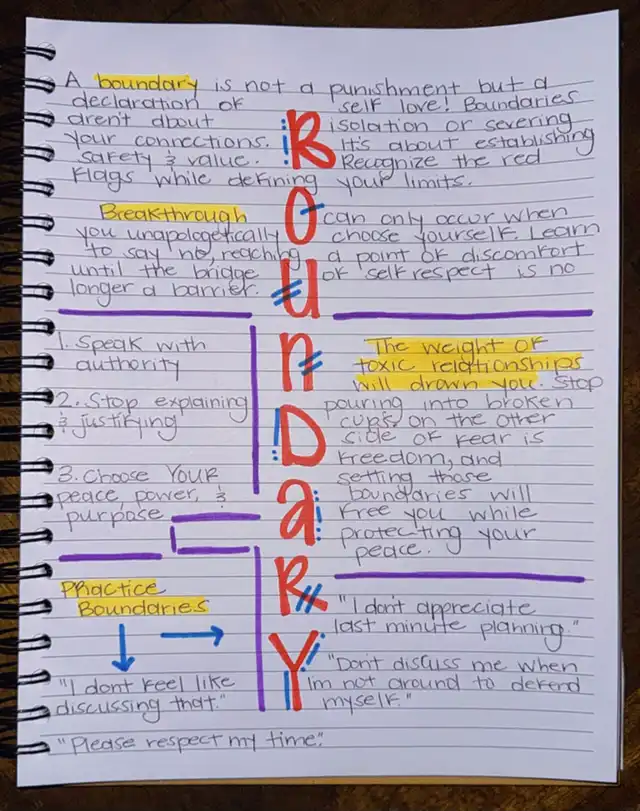 A boundary is not a punishment but a
declaration of self love! Boundaries
aren't about isolation or severing
your connections. It's about establishing
safety & value. Recognize the red
flags while defining your limits.
Breakthrough can only occur when
you unapologetically choose yourself. Learn
to say no, reaching a point of discomfort
until the bridge of self respect is no
longer a barrier.
BOUnDaRY
1. Speak with
authority
2. Stop explaining
& justifying
3. Choose YOUR
peace, power, &
purpose
The weight of
toxic relationships
will drown you. Stop
pouring into broken
cups, on the other
side of fear is
freedom, and
setting those
boundaries will
free you while
protecting your
peace.
Practice
Boundaries
"I dont feel like
discussing that."
"Please respect my time."
"I don't appreciate
last minute planning."
"Don't discuss me when
Im not around to defend
myself."